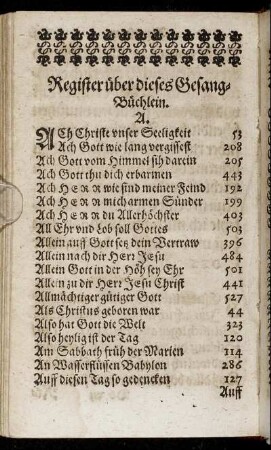 Register über dieses Gesang-
Büchlein.
A.
ACh Christe vnser Seeligkeit 53
Ach Gott wie lang vergissest 208
Ach Gott vom Himmel sih darein 205
Ach Gott thu dich erbarmen 443
Ach HERR wie sind meiner Feind 192
Ach HERR mich armen Sünder 199
Ach HERR du Allerhöchster 403
All Ehr vnd Lob soll Gottes 503
Allein auff Gott sez dein Vertraw 396
Allein nach dir Herr Jesu 484
Allein Gott in der Höh sey Ehr 501
Allein zu dir Herr Jesu Christ 441
Allmächtiger gütiger Gott 527
Als Christus geboren war 44
Also hat Gott die Welt 323
Also heylig ist der Tag 120
Am Sabbath früh der Marien 114
An Wasserflüssen Babylon 286
Auff diesen Tag so gedencken 127
Auff